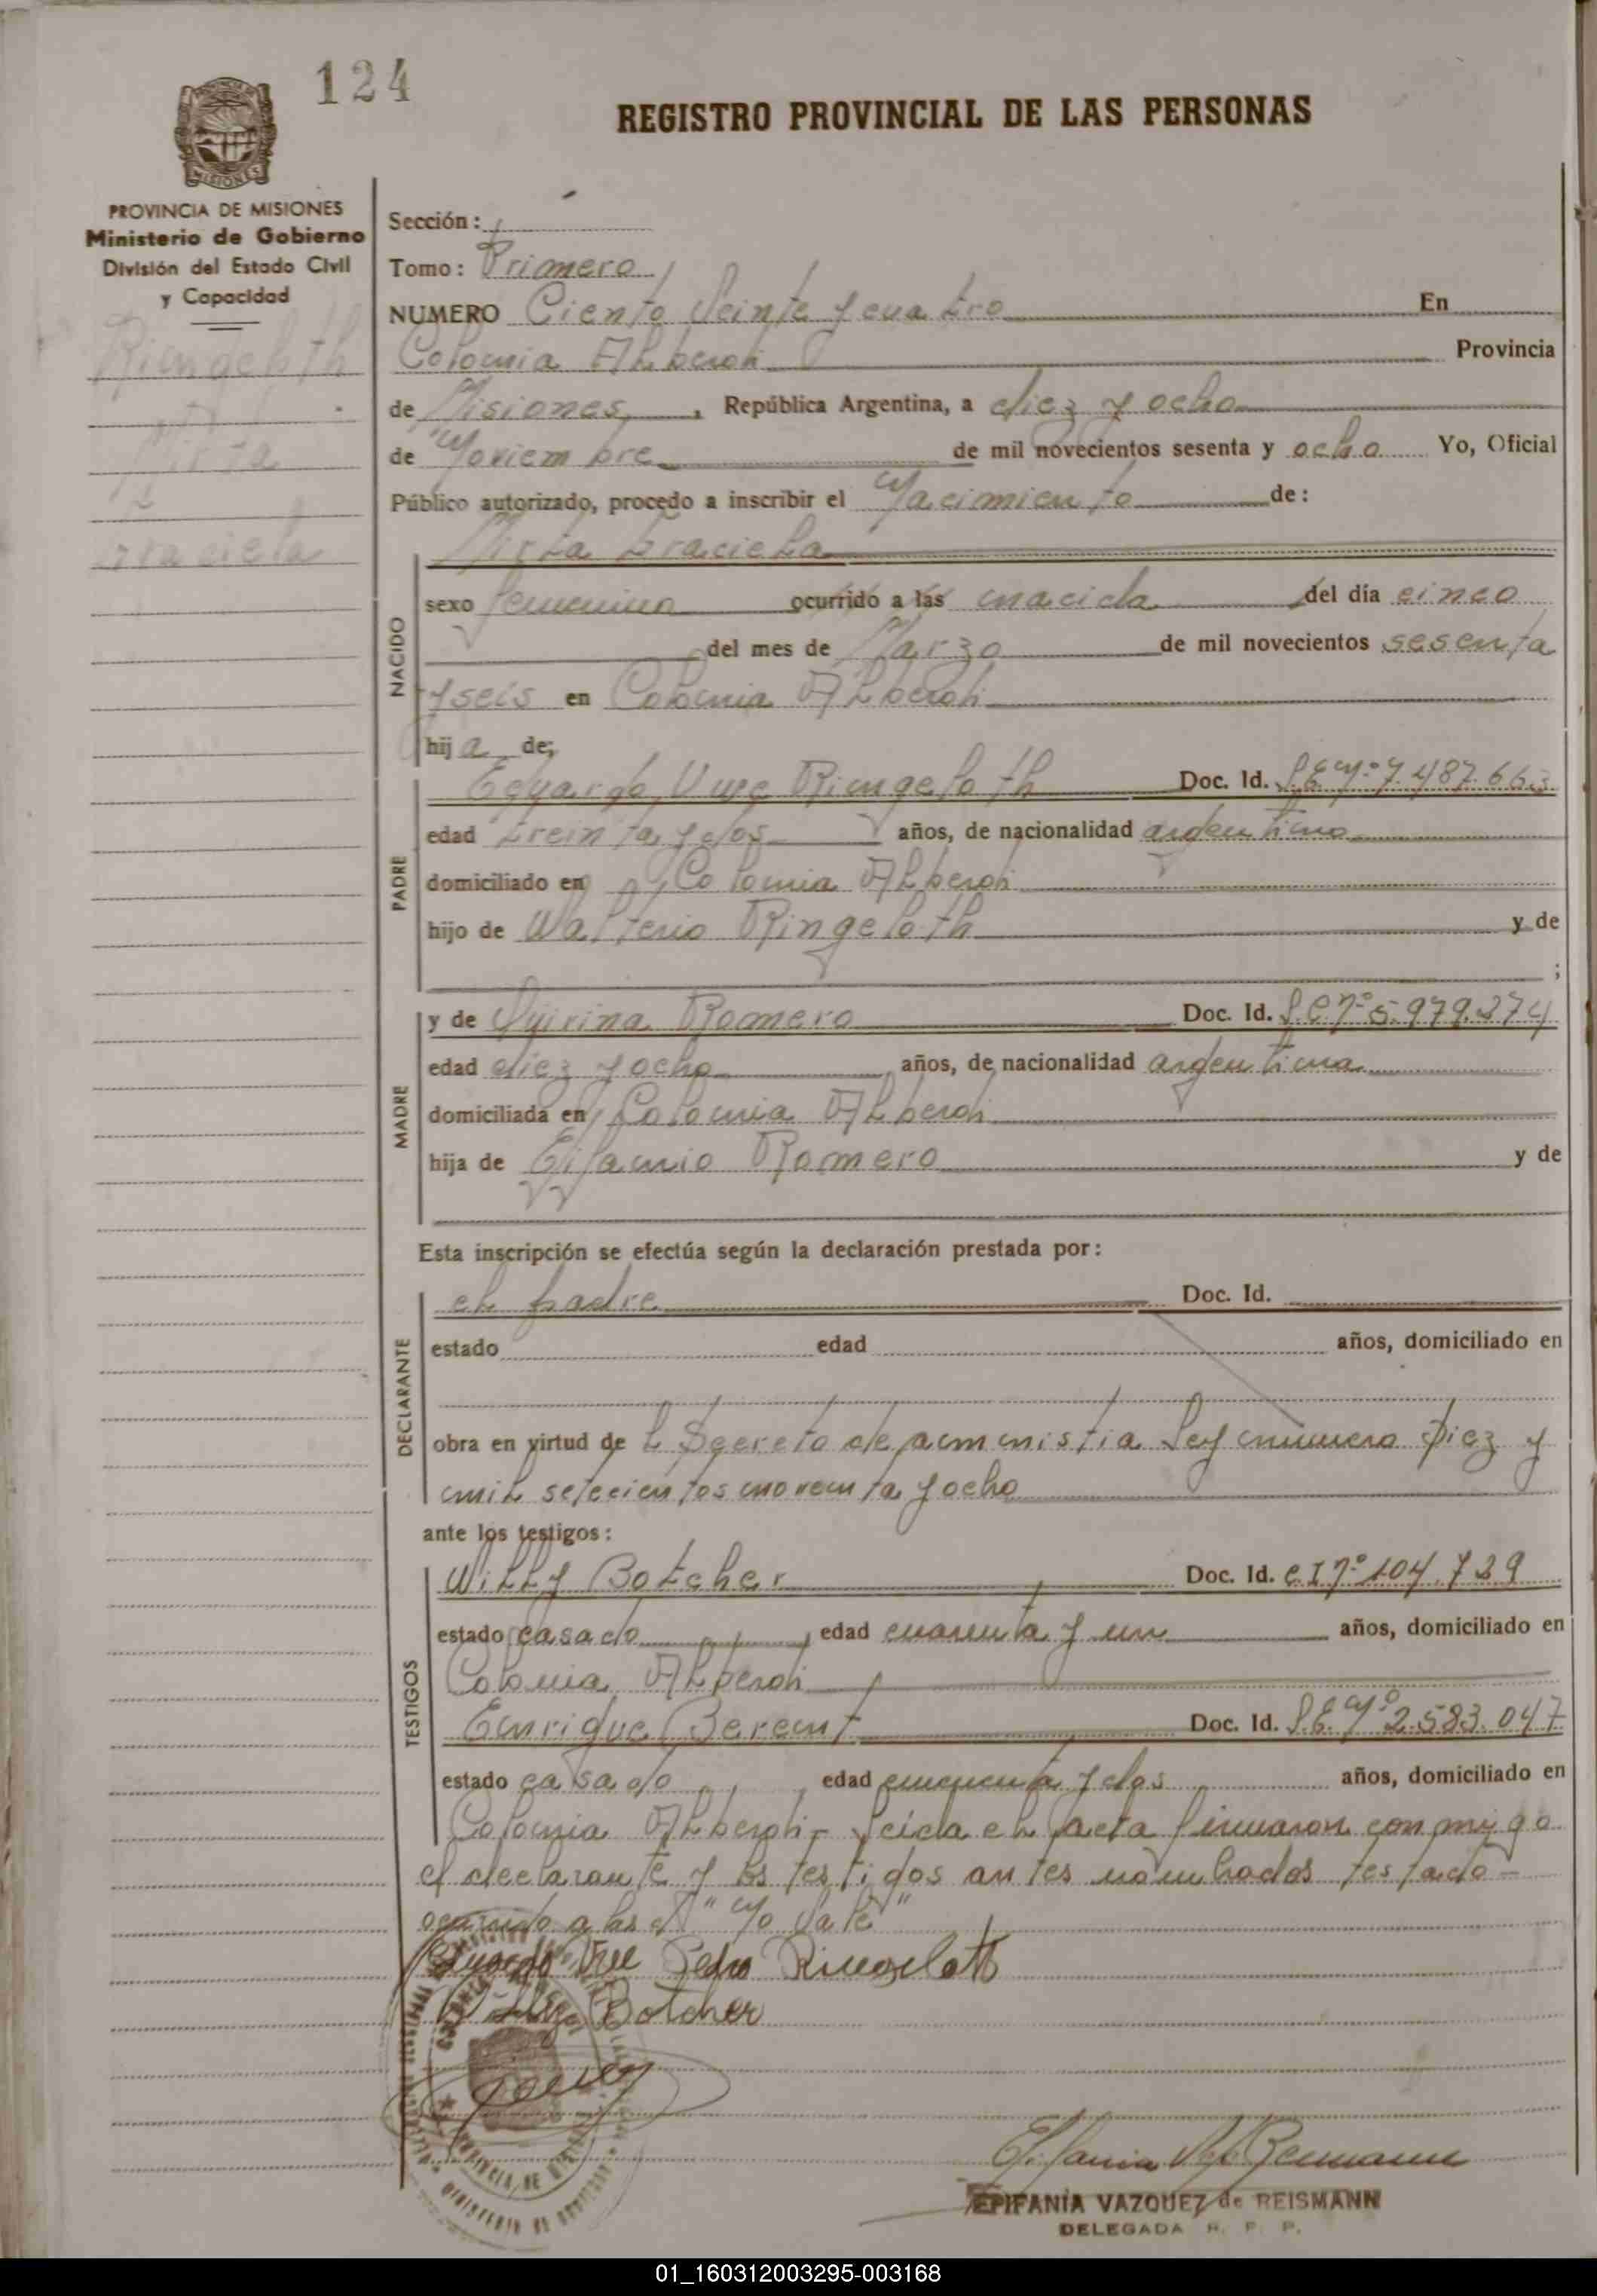 124
REGISTRO PROVINCIAL DE LAS PERSONAS
MISIONES
PROVINCIA DE MISIONES
Ministerio de Gobierno
División del Estado Civil
y Capacidad
Ringeloth
Mirta
Graciela
Sección:
Tomo: Primero
NUMERO Ciento Veinte y cuatro En
Colonia Alberdi Provincia
de Misiones, República Argentina, a diez y ocho
de Noviembre de mil novecientos sesenta y ocho Yo, Oficial
Público autorizado, procedo a inscribir el Nacimiento de:
Mirta Graciela
NACIDO
sexo femenino ocurrido a las nacida del día cinco
del mes de Marzo de mil novecientos sesenta
y seis en Colonia Alberdi
hija de;
PADRE
Eduardo Uve Ringeloth Doc. Id. L.E. Nº 7.487.663
edad treinta y dos años, de nacionalidad argentino
domiciliado en Colonia Alberdi
hijo de Walterio Ringeloth y de
;
MADRE
y de Quirina Romero Doc. Id. L.C. Nº 5.979.274
edad diez y ocho años, de nacionalidad argentina
domiciliada en Colonia Alberdi
hija de Epifanio Romero y de
Esta inscripción se efectúa según la declaración prestada por:
DECLARANTE
el padre Doc. Id.
estado edad años, domiciliado en
obra en virtud de l Decreto de amnistia Ley número Diez y
mil setecientos noventa y ocho
ante los testigos:
TESTIGOS
Willy Botcher Doc. Id. C.I Nº 104.739
estado casado edad cuarenta y un años, domiciliado en
Colonia Alberdi
Enrique Berent Doc. Id. L.E. Nº 2.583.047
estado casado edad cincuenta y dos años, domiciliado en
Colonia Alberdi - Leida el acta firmaron conmigo
el declarante y los testigos antes nombrados testado-
ocurrido a las d "No Vale"
Eduardo Uve Pedro Ringeloth
Willy Botcher
EPIFANIA VAZQUEZ de REISMANN
DELEGADA R. P. P.
01_160312003295-003168